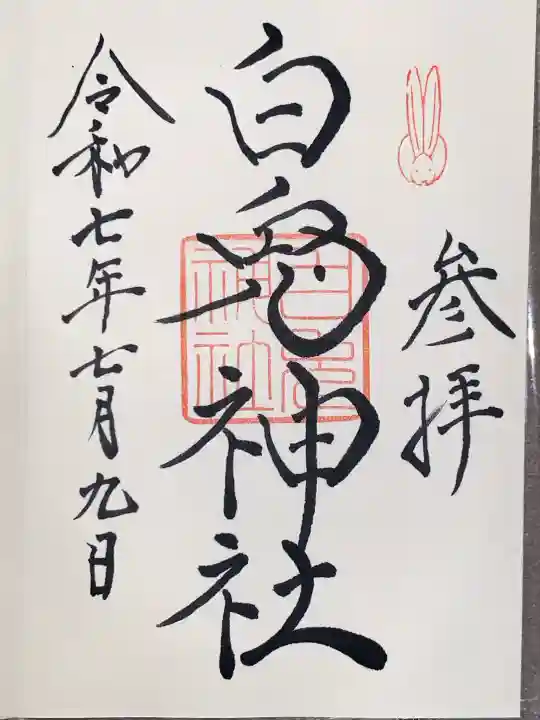 参拝
白兎神社
白兎神社
令和七年七月九日